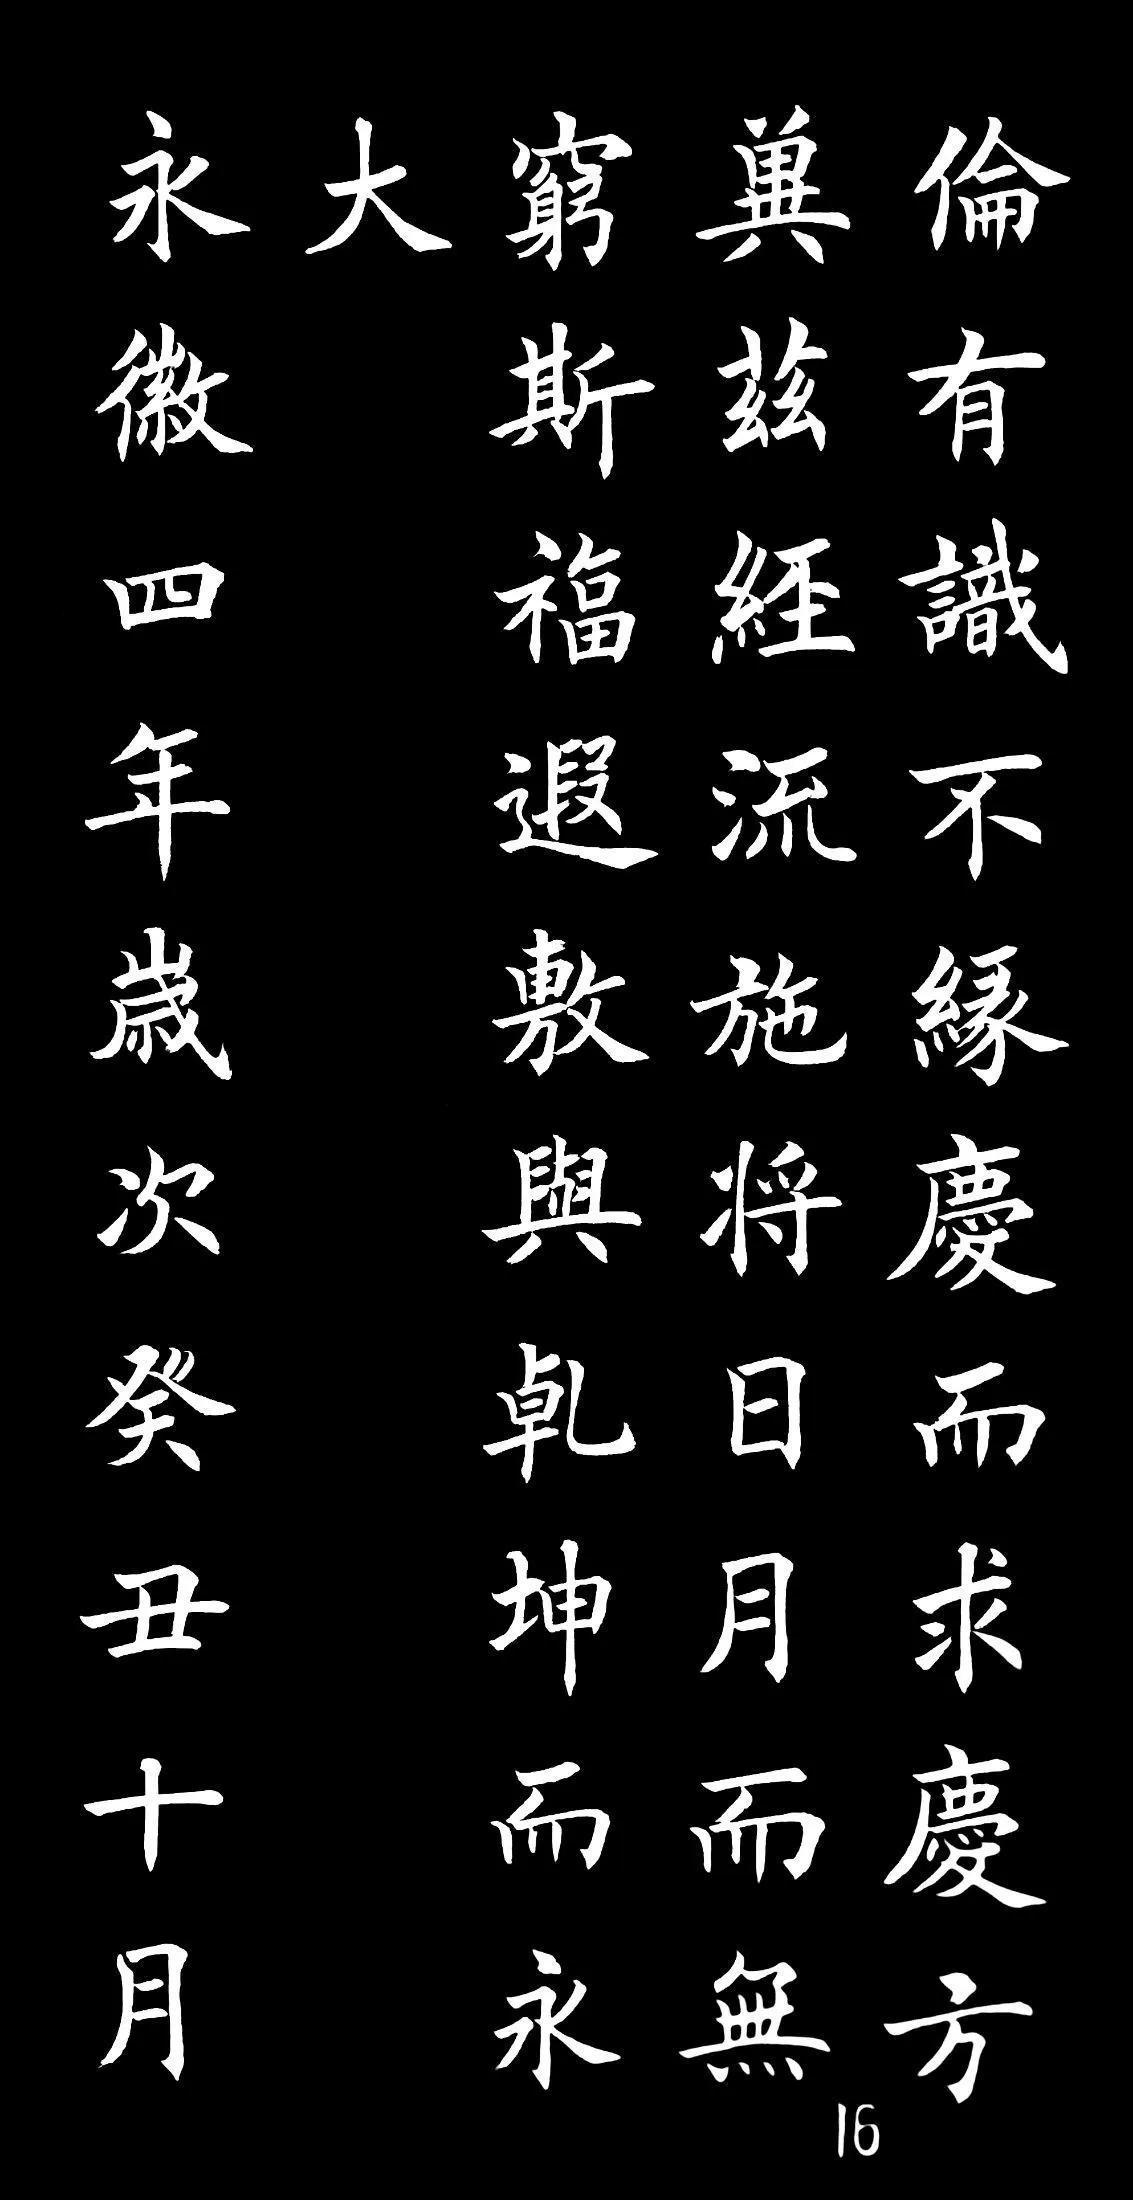 倫有識不緣慶而求慶方
冀茲經流施将日月而無
窮斯福遐敷與乹坤而永
大
永徽四年歲次癸丑十月
16